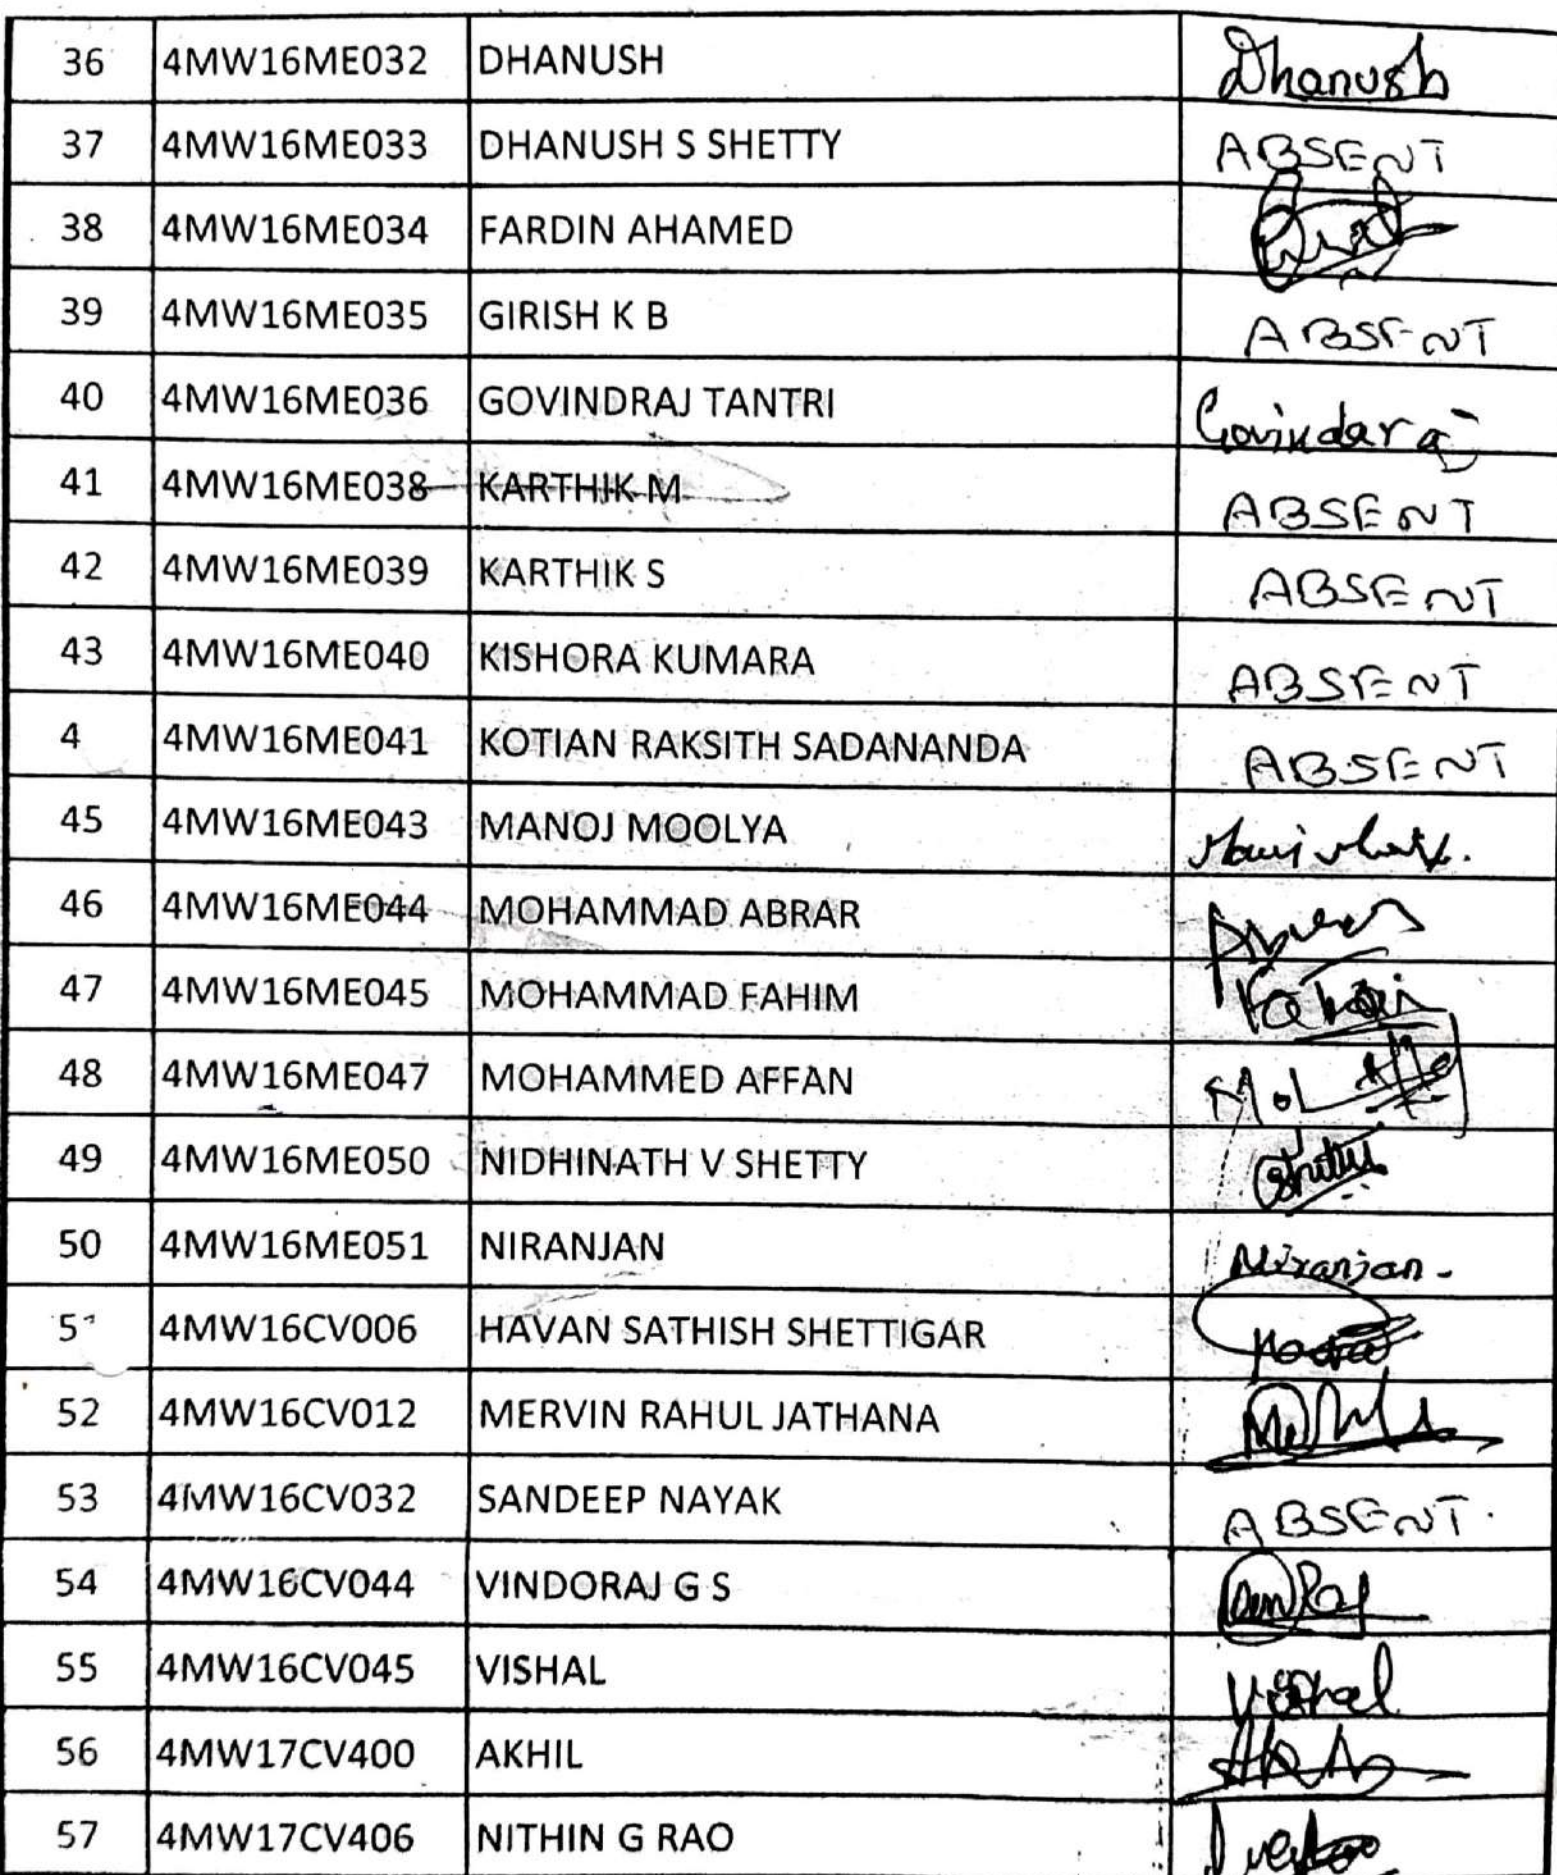 36 4MW16ME032 DHANUSH Dhanush
37 4MW16ME033 DHANUSH S SHETTY ABSENT
38 4MW16ME034 FARDIN AHAMED
39 4MW16ME035 GIRISH K B ABSENT
40 4MW16ME036 GOVINDRAJ TANTRI Govindaraj
41 4MW16ME038 KARTHIK M ABSENT
42 4MW16ME039 KARTHIK S ABSENT
43 4MW16ME040 KISHORA KUMARA ABSENT
4 4MW16ME041 KOTIAN RAKSITH SADANANDA ABSENT
45 4MW16ME043 MANOJ MOOLYA
46 4MW16ME044 MOHAMMAD ABRAR
47 4MW16ME045 MOHAMMAD FAHIM
48 4MW16ME047 MOHAMMED AFFAN
49 4MW16ME050 NIDHINATH V SHETTY
50 4MW16ME051 NIRANJAN Niranjan-
5 4MW16CV006 HAVAN SATHISH SHETTIGAR
52 4MW16CV012 MERVIN RAHUL JATHANA
53 4MW16CV032 SANDEEP NAYAK ABSENT.
54 4MW16CV044 VINDORAJ G S
55 4MW16CV045 VISHAL Vishal
56 4MW17CV400 AKHIL
57 4MW17CV406 NITHIN G RAO